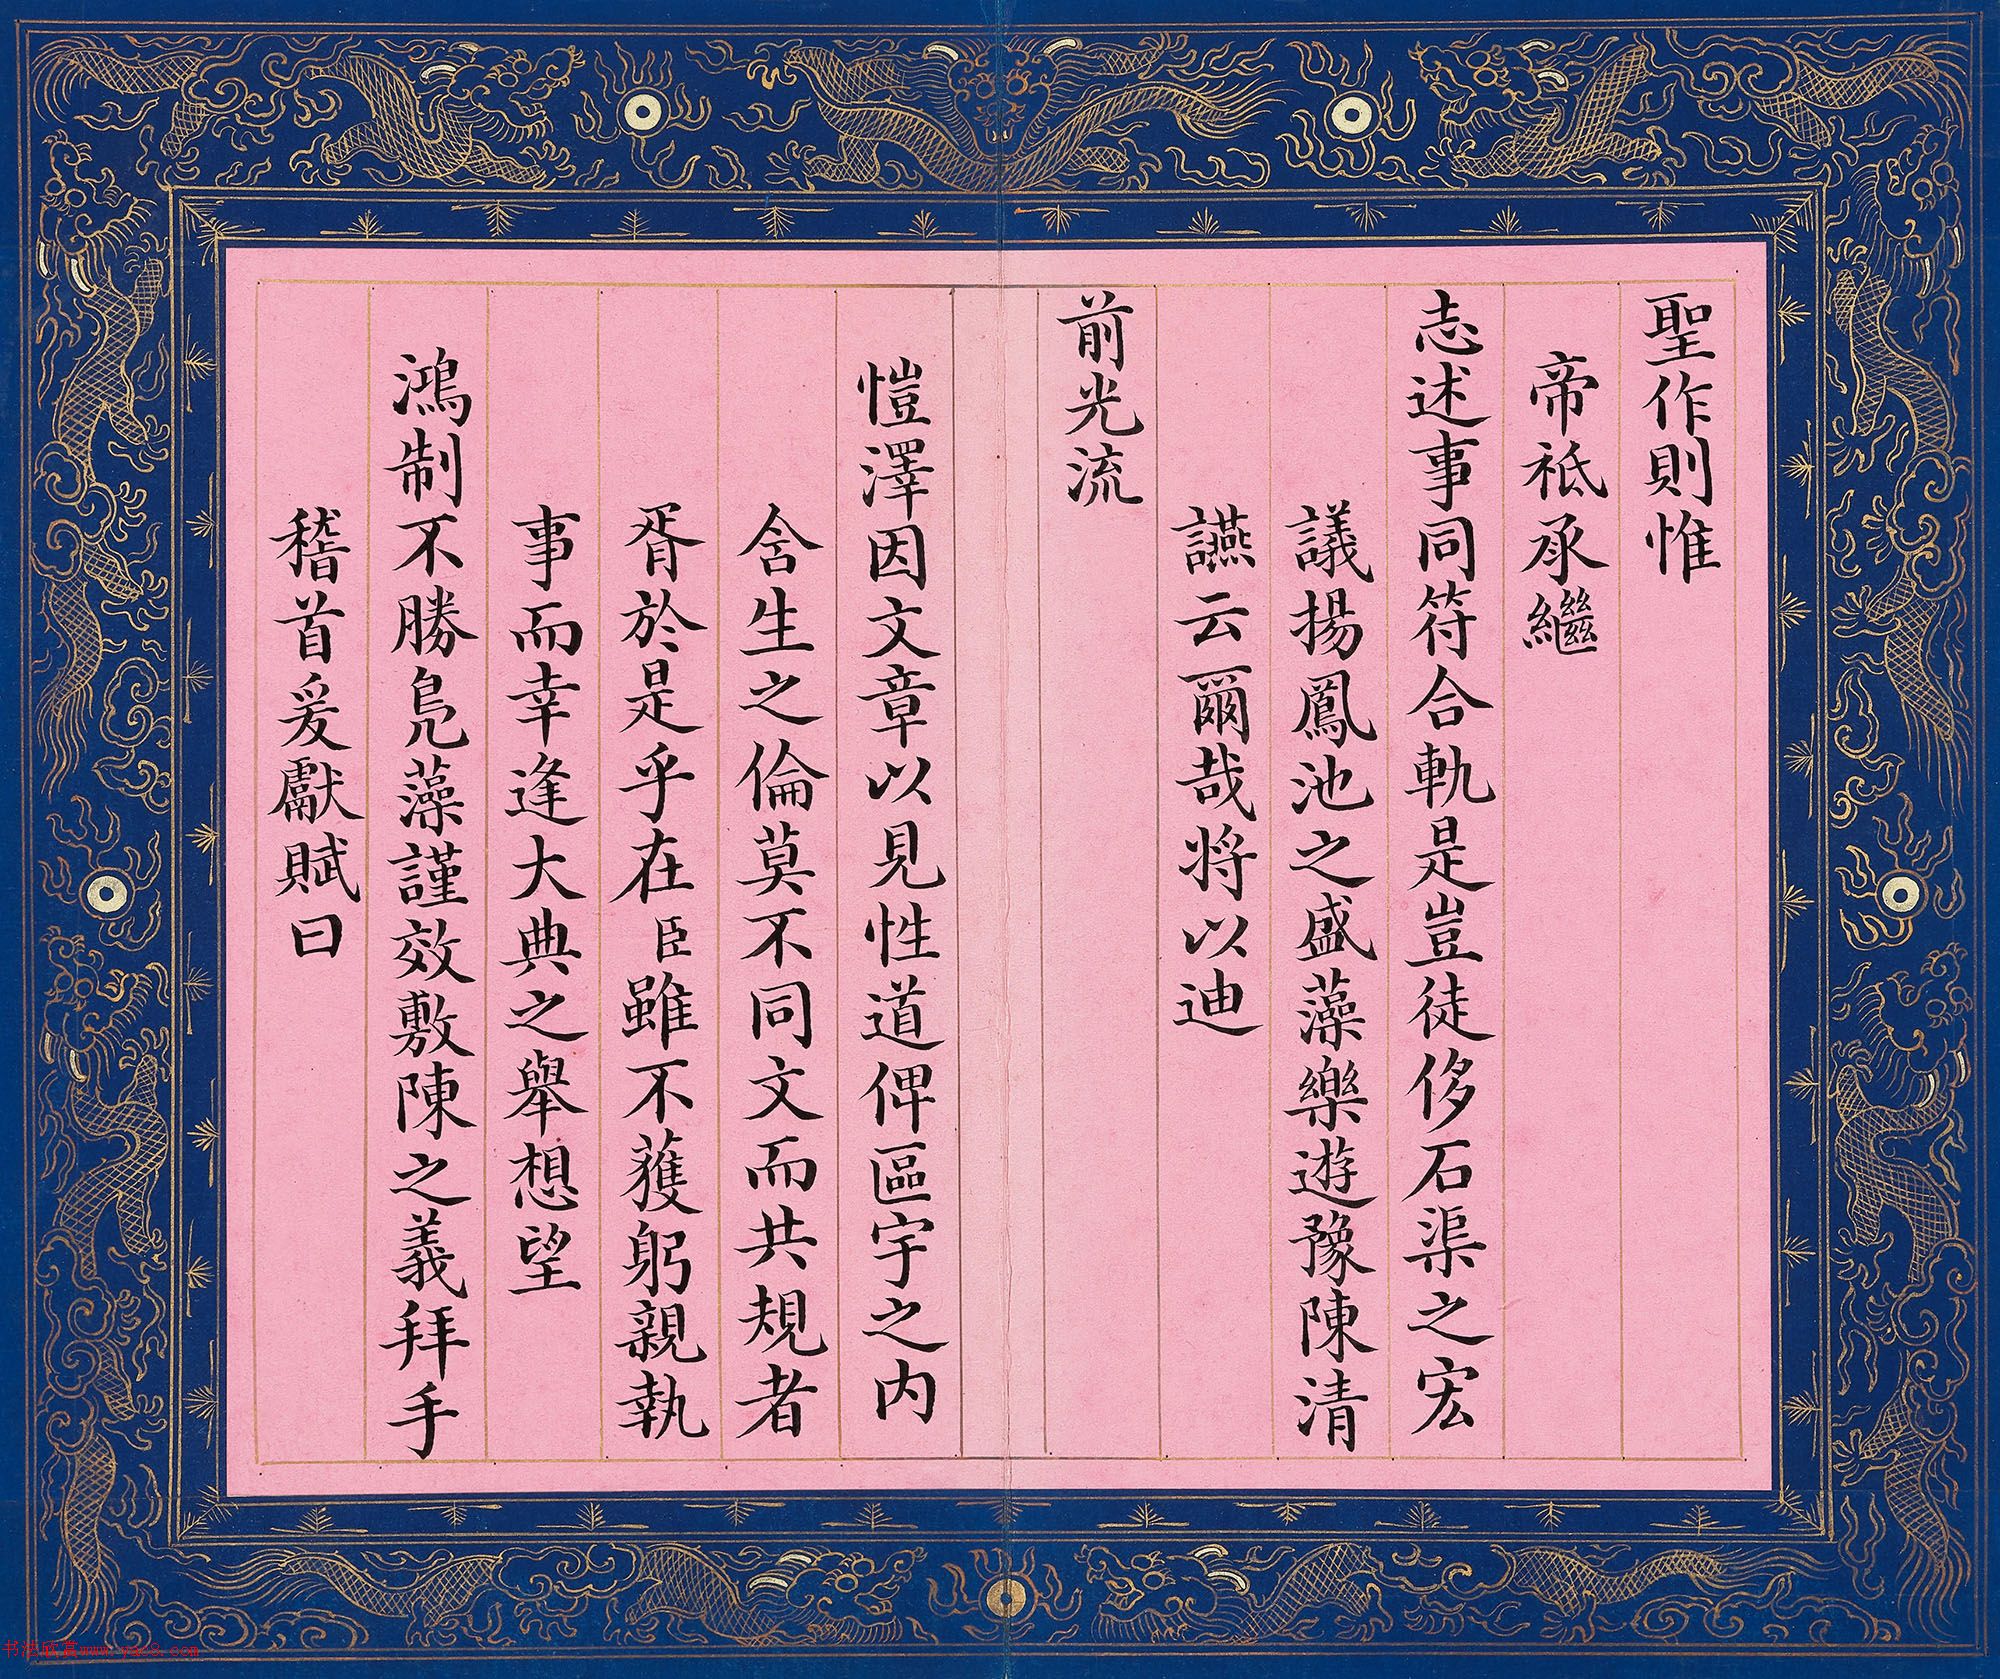 聖作則惟
帝祗承繼
志述事同符合軌是豈徒侈石渠之宏
議揚鳳池之盛藻樂遊豫陳清
讌云爾哉將以迪
前光流
愷澤因文章以見性道俾區宇之内
含生之倫莫不同文而共規者
胥於是乎在臣雖不獲躬親執
事而幸逢大典之舉想望
鴻制不勝鳧藻謹效敷陳之義拜手
稽首爰獻賦曰
书法欣赏www.yac8.com